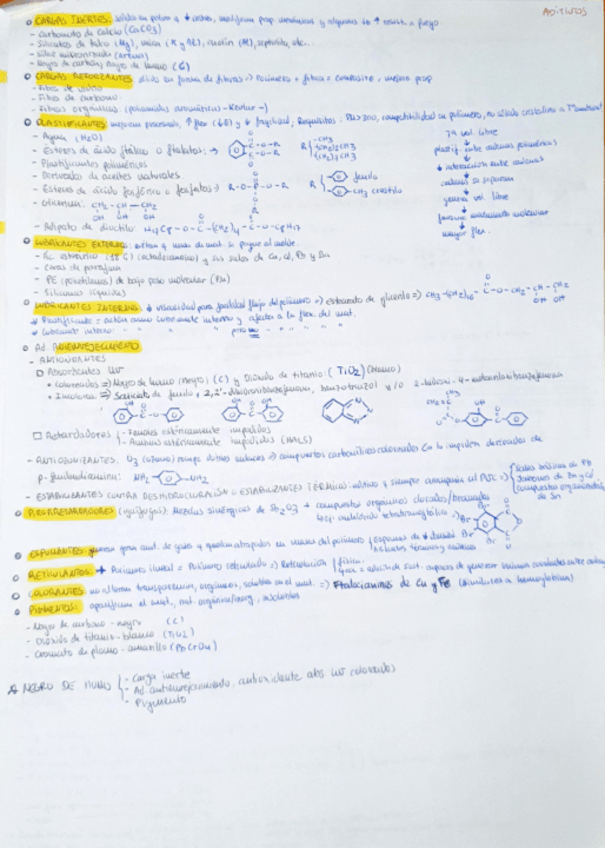 ADITIVOS
CARGAS INERTES: sólidos en polvo
- Carbonato de calcio (CaCO3)
- Silicatos de talco (Mg), mica (K y Al), caolín (Al), sepiolita, etc..
- Sílice micronizada (arena)
- Negro de carbón, negro de humo (C)
CARGAS REFORZANTES: sólidos en forma de fibras => Polímero + fibra = composite, mejora prop
- Fibra de vidrio
- Fibra de carbono
- Fibras orgánicas: (poliamidas aromáticas - Kevlar -)
PLASTIFICANTES: mejoran procesado, ↑ flex y ↓ fragilidad, Requisitos: compatibilidad en polímero,
- Agua (H2O)
- Ésteres de ácido ftálico o ftalatos: C-O-R C-O-R R -CH3
- Plastificantes poliméricos
- Derivados de aceites naturales
- Ésteres de ácido fosfórico o fosfatos: R-O-P-O-R O R R fenilo CH3 cresilo
- Glicerina: CH2-CH-CH2 OH OH OH
- Adipato de dioctilo: H17C8-O-C-(CH2)4-C-O-C8H17
Tª vol. libre
plastif. entre cadenas poliméricas
↓ interacción entre cadenas
cadenas se separan
genera vol. libre
favorece movimiento molecular
mayor flex.
LUBRICANTES EXTERNOS: evitan q masa de mat. se pegue al molde.
- Ác. esteárico (18 C) (octadecanoico) y sus sales de Ca, Cd, Pb y Ba
- Ceras de parafina
- PE (polietileno) de bajo peso molecular (Pm)
- Siliconas líquidas
LUBRICANTES INTERNOS: ↓ viscosidad para facilitar flujo del polímero => Estearato de glicerilo => CH3-(CH2)16-C-O-CH2-CH-CH2 OH OH
* Plastificante = actúa como lubricante interno y afecta a la flex. del mat.
* Lubricante interno: " " " " pero no " " " "
Ad. ANTIENVEJECIMIENTO
- ANTIOXIDANTES
□ Absorbentes UV
• Coloreados => Negro de humo (negro) (C) y Dióxido de titanio: (TiO2) (blanco)
• Incoloros => Salicilato de fenilo, 2,2'-dihidroxibenzofenona, benzotriazol y/o 2-hidroxi-4-metacriloxibenzofenona
□ Retardadores - Fenoles estéricamente impedidos
- Aminas estéricamente impedidas (HALS)
- ANTIOZONIZANTES: O3 (ozono) rompe dobles enlaces => compuestos carbonílicos coloreados Lo impiden derivados de
p-fenilendiamina: NH2 -NH2
- ESTABILIZANTES CONTRA DESHIDROCLORACIÓN o ESTABILIZANTES TÉRMICOS: PVC => Sales básicas de Pb
Jabones de Ba y Cd
Compuestos organometálicos de Sn
PIRORRETARDADORES (ignífugos): Mezclas sinérgicas de Sb2O3 + compuestos orgánicos clorados/bromados
ej: anhídrido tetrabromoftálico Br Br Br Br
ESPUMANTES: generan gran cant. de gases q quedan atrapados en masa del polímero
RETICULANTES: + Polímero lineal = Polímero reticulado => Reticulación
COLORANTES: no alteran transparencia, orgánicos, solubles en el mat. => Ftalocianinas de Cu y Fe (similares a hemoglobina)
PIGMENTOS: opacifican el mat., nat. orgánica/inorg., insolubles
- Negro de carbono - negro (C)
- Dióxido de titanio - blanco (TiO2)
- Cromato de plomo - amarillo (PbCrO4)
NEGRO DE HUMO - Carga inerte
- Ad. antienvejecimiento, antioxidante abs UV coloreados
- Pigmento